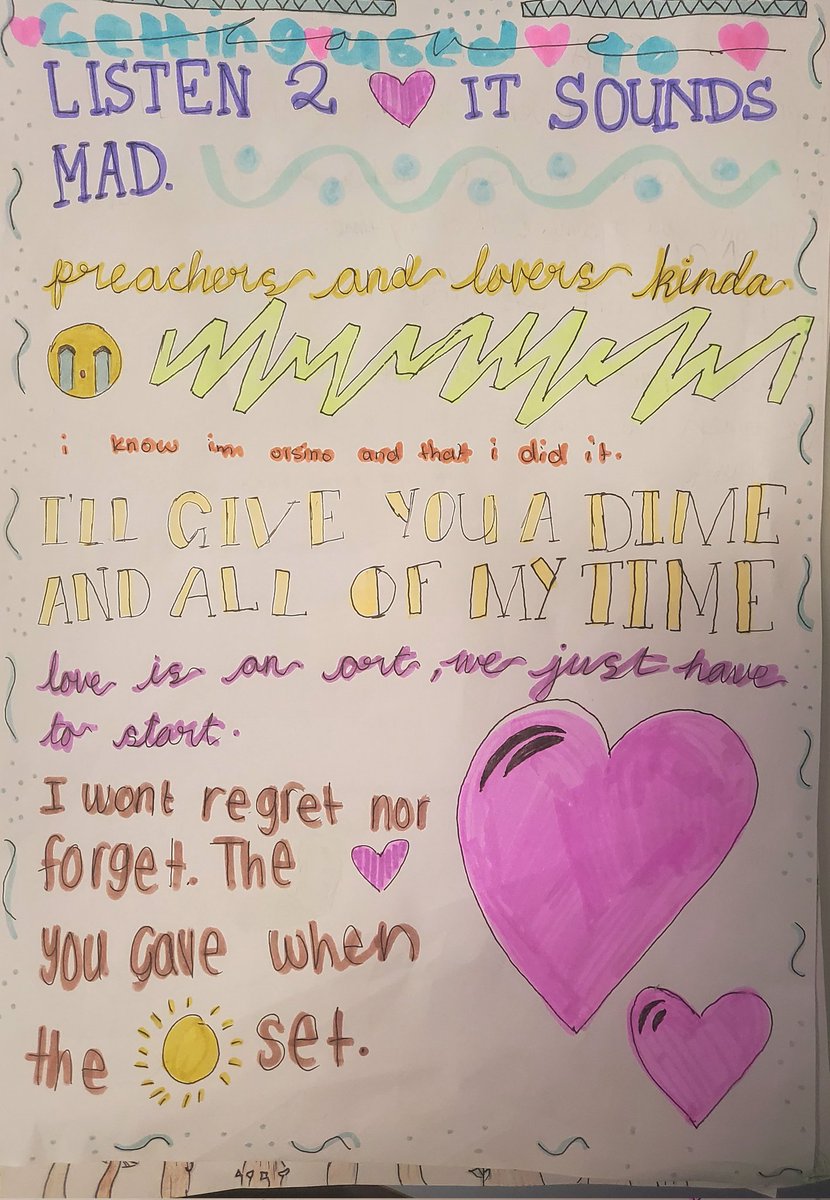 Getting used to
LISTEN 2 IT SOUNDS
MAD.
preachers and lovers kinda
i know im orsino and that i did it.
I'LL GIVE YOU A DIME
AND ALL OF MY TIME
love is an art, we just have
to start.
I wont regret nor
forget. The
you gave when
the set.